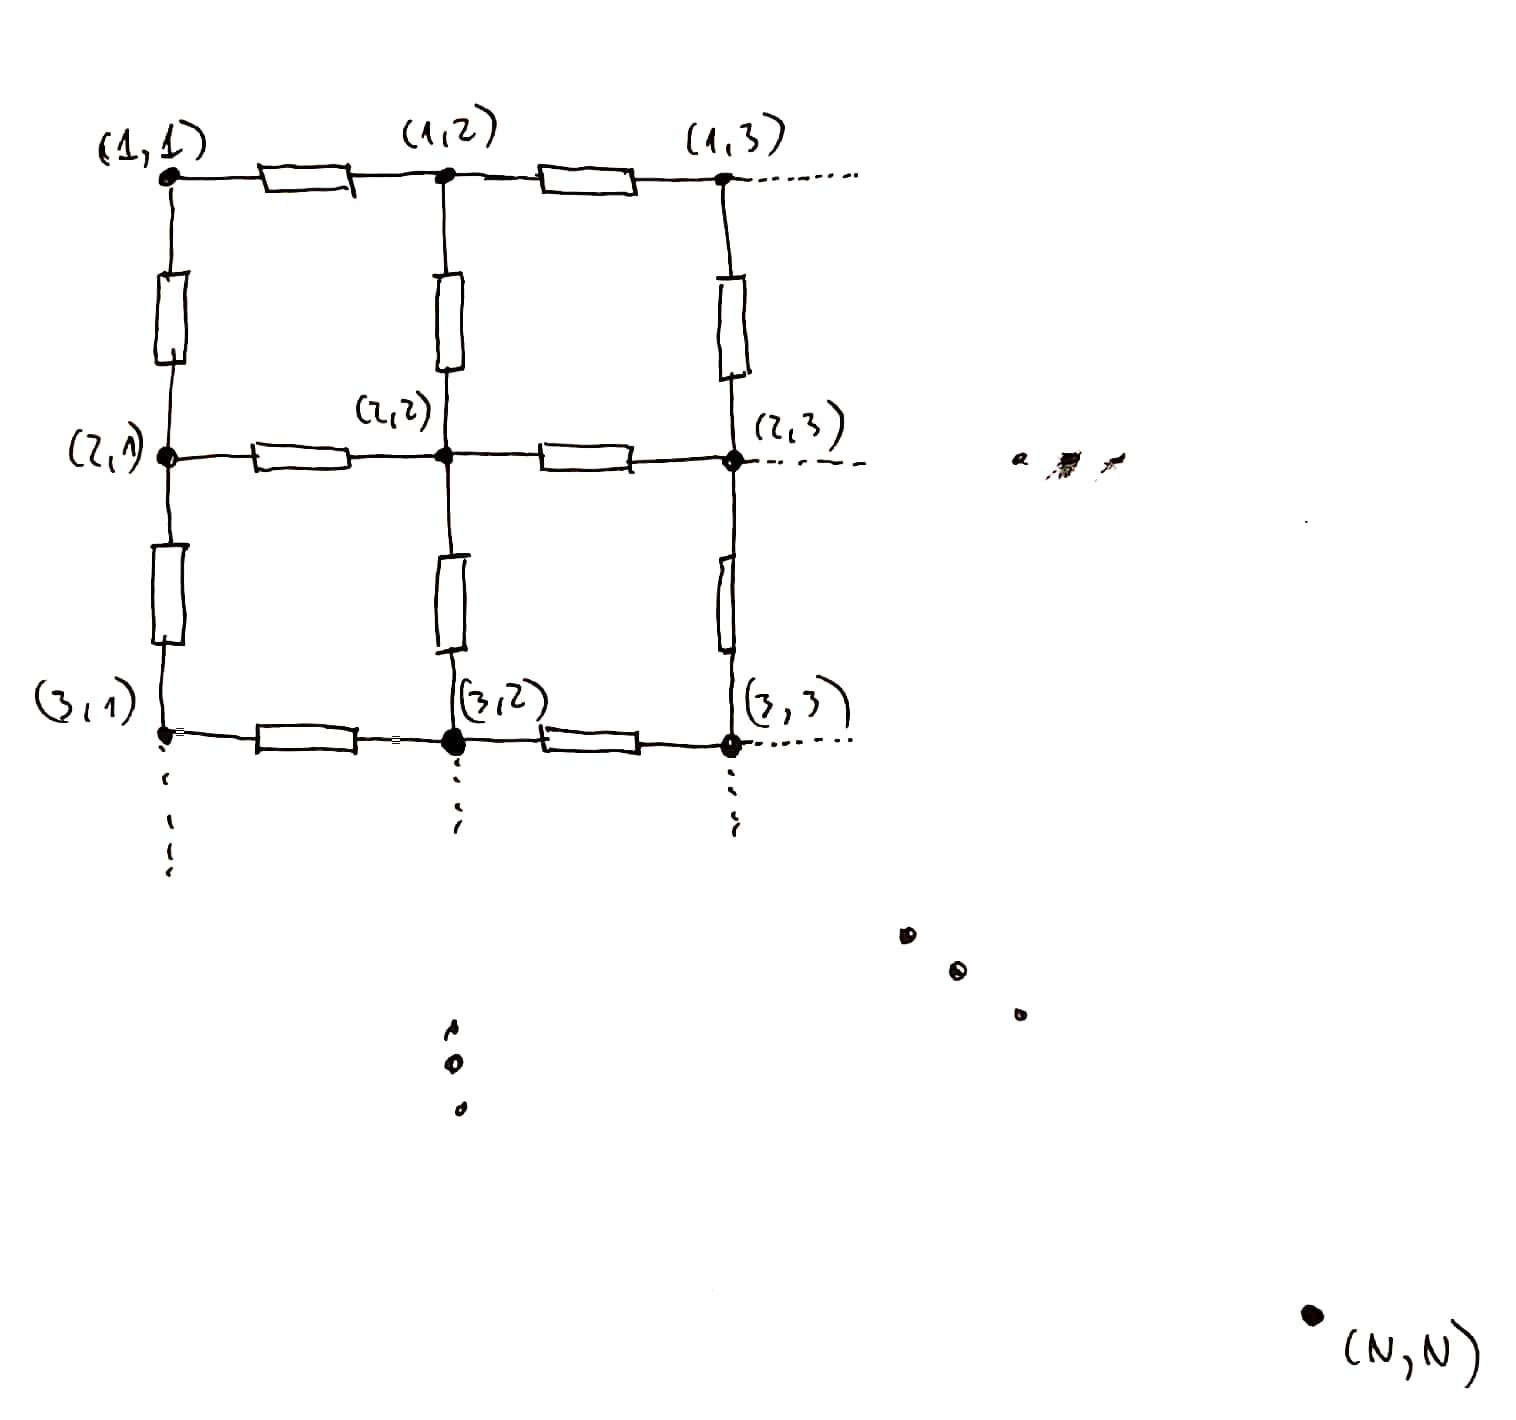 (1,1) (1,2) (1,3)
(2,1) (2,2) (2,3)
(3,1) (3,2) (3,3)
(N,N)